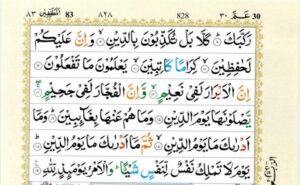 30 عم ٣٠ 828 ٨٢٨ 83 المطففين ٨٣
رَكَّبَكَ ۝ كَلَّا بَلْ تُكَذِّبُوْنَ بِالدِّيْنِ ۝ وَاِنَّ عَلَيْكُمْ
لَحٰفِظِيْنَ ۝ كِرَامًا كَاتِبِيْنَ ۝ يَعْلَمُوْنَ مَا تَفْعَلُوْنَ ۝
اِنَّ الْاَبْرَارَ لَفِيْ نَعِيْمٍ ۝ وَّاِنَّ الْفُجَّارَ لَفِيْ جَحِيْمٍ ۝
يَّصْلَوْنَهَا يَوْمَ الدِّيْنِ ۝ وَمَا هُمْ عَنْهَا بِغَآئِبِيْنَ ۝ وَمَآ
اَدْرٰىكَ مَا يَوْمُ الدِّيْنِ ۝ ثُمَّ مَآ اَدْرٰىكَ مَا يَوْمُ الدِّيْنِ ۝
يَوْمَ لَا تَمْلِكُ نَفْسٌ لِّنَفْسٍ شَيْئًا ۖ وَالْاَمْرُ يَوْمَئِذٍ لِّلّٰهِ ۝